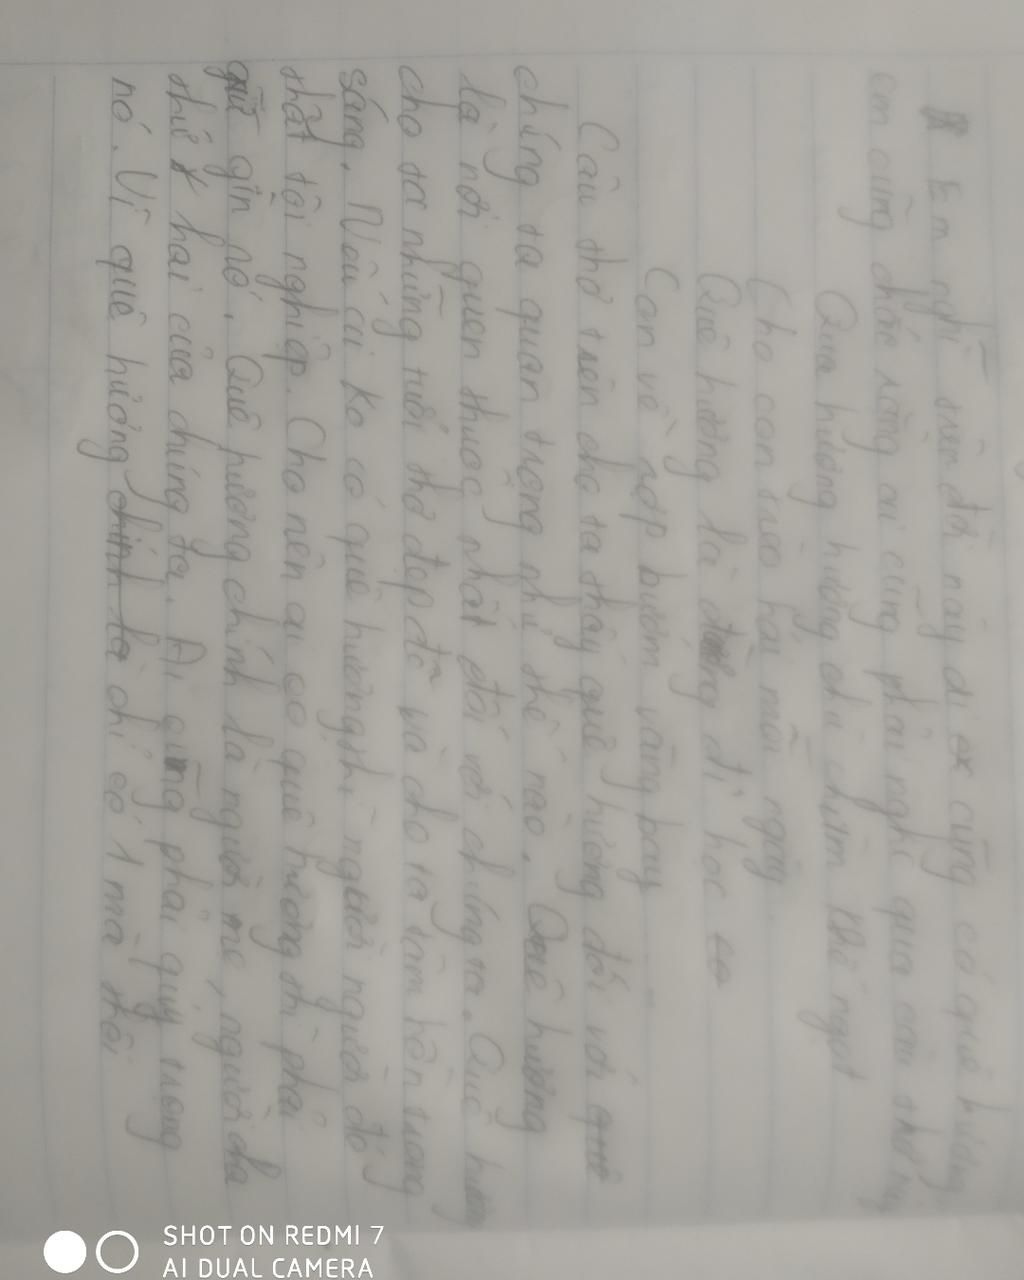 Em nghĩ trên đời này ai cũng có quê hương
em cũng chắc rằng ai cũng phải nghe qua câu thơ này
Qua hương hương chù chùm khế ngọt
Cho con trèo hái mỗi ngày
Quê hương là đường đi học
Con về rợp bướm vàng bay
Câu thơ trên cho ta thấy quê hương đối với
chúng ta quan trọng như thế nào. Quê hương
là nơi quen thuộc nhất đối với chúng ta. Quê hương
cho ta những tuổi thơ đẹp đẽ và cho ta tâm hồn trong
sáng. Nếu ai ko có quê hương thì người người đó
thật tội nghiệp. Cho nên ai có quê hương thì phải
giữ gìn nó. Quê hương chính là người mẹ, người cha
thứ hai của chúng ta. Ai cũng phải quý trọng
nó. Vì quê hương chỉ có 1 mà thôi
SHOT ON REDMI 7
AI DUAL CAMERA